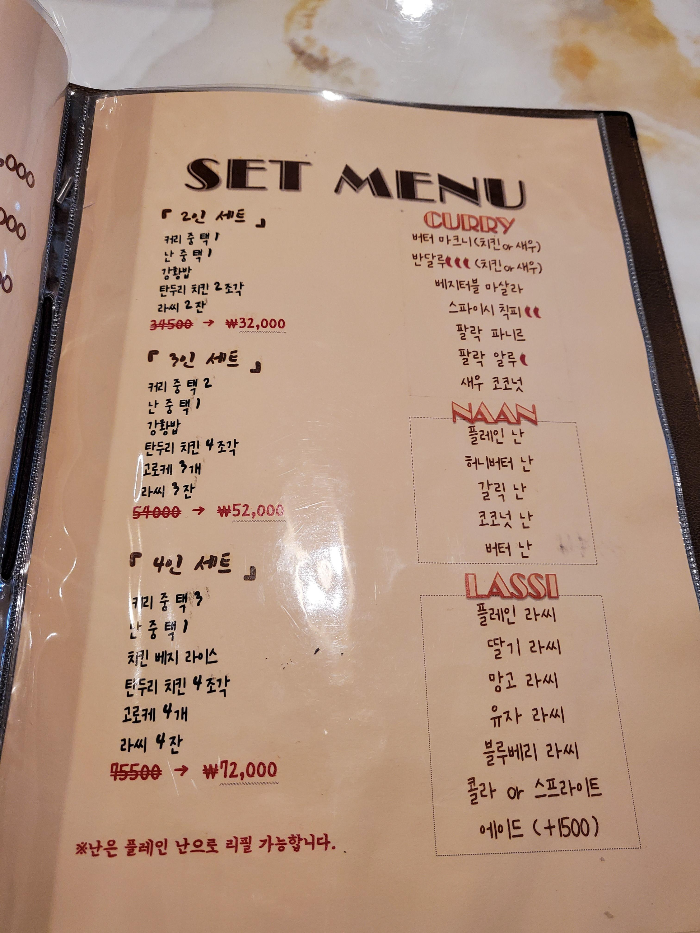 ,000
,000
00
SET MENU
「 2인 세트 」
커리 중 택 1
난 중 택 1
강황밥
탄두리 치킨 2조각
라씨 2잔
34500 → ₩32,000
「 3인 세트 」
커리 중 택 2
난 중 택 1
강황밥
탄두리 치킨 4조각
고로케 3개
라씨 3잔
54000 → ₩52,000
「 4인 세트 」
커리 중 택 3
난 중 택 1
치킨 베지 라이스
탄두리 치킨 4조각
고로케 4개
라씨 4잔
75500 → ₩72,000
※난은 플레인 난으로 리필 가능합니다.
CURRY
버터 마크니(치킨or새우)
반달루 (치킨or새우)
베지터블 마살라
스파이시 칙피
팔락 파니르
팔락 알루
새우 코코넛
NAAN
플레인 난
허니버터 난
갈릭 난
코코넛 난
버터 난
LASSI
플레인 라씨
딸기 라씨
망고 라씨
유자 라씨
블루베리 라씨
콜라 or 스프라이트
에이드 (+1500)